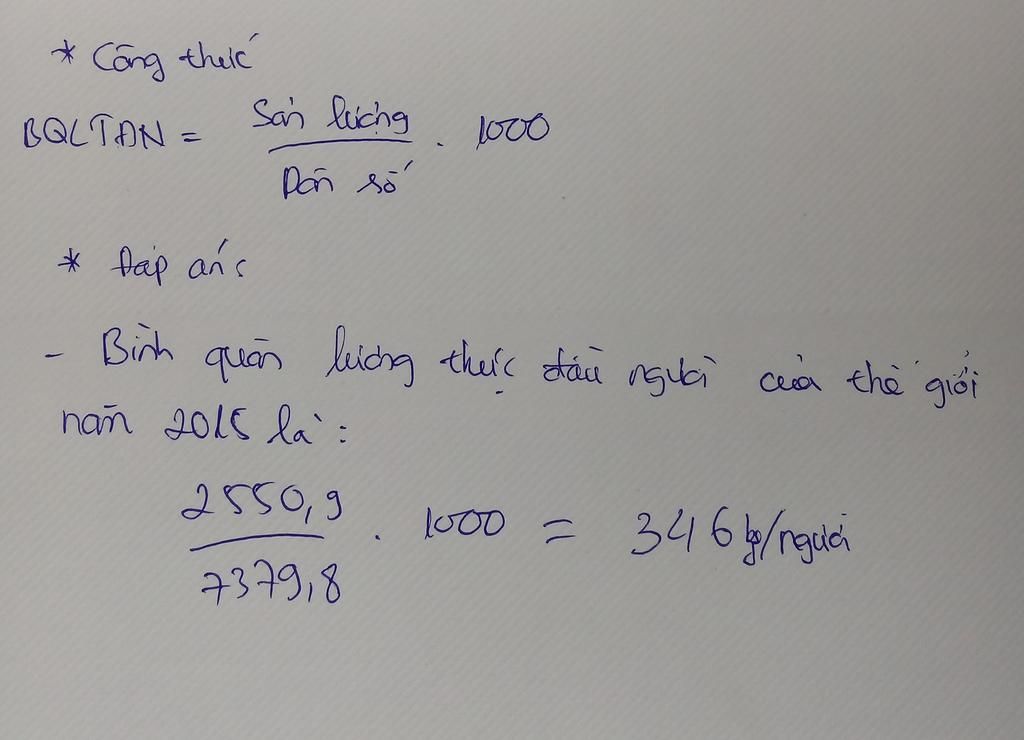 * Công thức
BQLTĐN = Sản lượng / Dân số . 1000
* Đáp án:
- Bình quân lương thực đầu người của thế giới
năm 2015 là:
2550,9 / 7379,8 . 1000 = 346 kg/người